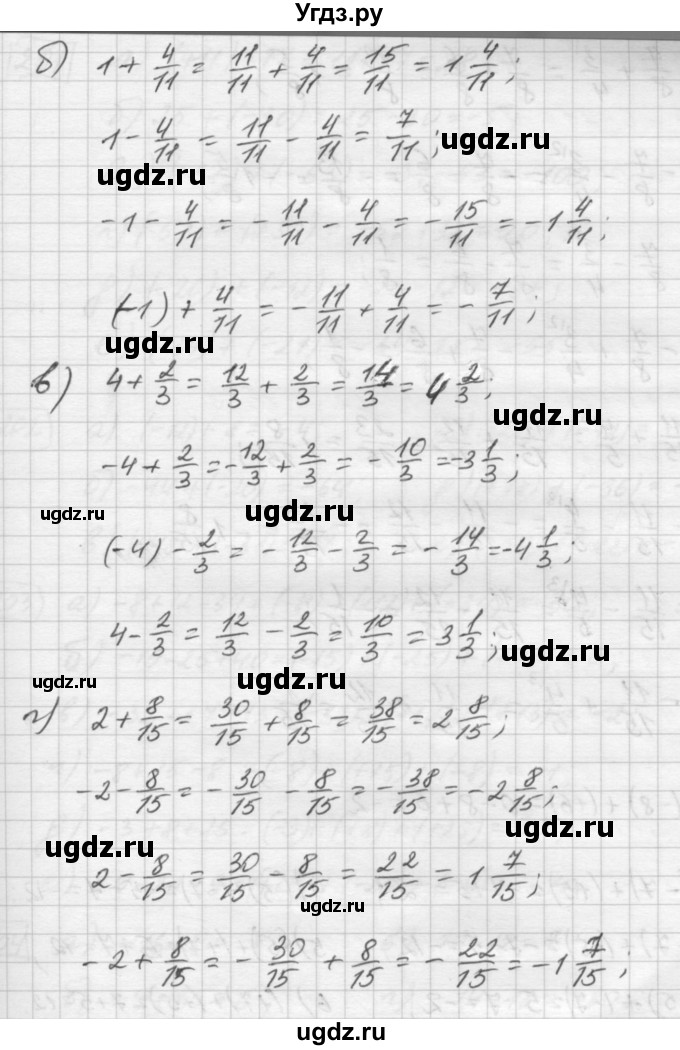 Угдз.ру
б) 1 + 4/11 = 11/11 + 4/11 = 15/11 = 1 4/11;
1 - 4/11 = 11/11 - 4/11 = 7/11; ugdz.ru
ugdz.ru
-1 - 4/11 = - 11/11 - 4/11 = - 15/11 = -1 4/11;
(-1) + 4/11 = - 11/11 + 4/11 = - 7/11;
ugdz.ru
в) 4 + 2/3 = 12/3 + 2/3 = 14/3 = 4 2/3;
ugdz.ru
-4 + 2/3 = - 12/3 + 2/3 = - 10/3 = -3 1/3;
ugdz.ru ugdz.ru
(-4) - 2/3 = - 12/3 - 2/3 = - 14/3 = -4 1/3;
4 - 2/3 = 12/3 - 2/3 = 10/3 = 3 1/3;
ugdz.ru ugdz.ru ugdz.ru
г) 2 + 8/15 = 30/15 + 8/15 = 38/15 = 2 8/15;
-2 - 8/15 = - 30/15 - 8/15 = - 38/15 = -2 8/15;
ugdz.ru ugdz.ru
2 - 8/15 = 30/15 - 8/15 = 22/15 = 1 7/15;
ugdz.ru
-2 + 8/15 = - 30/15 + 8/15 = - 22/15 = -1 7/15;
ugdz.ru